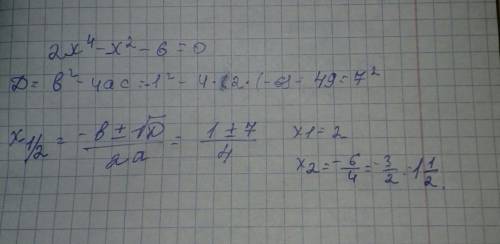 2x⁴-x²-6=0
D= b²-4ac=-1²-4·(2·(-6)=49=7²
x₁/₂ = (-b±√D)/2a = (1±7)/4 x1=2
x2=-6/4=-3/2=-1 1/2.